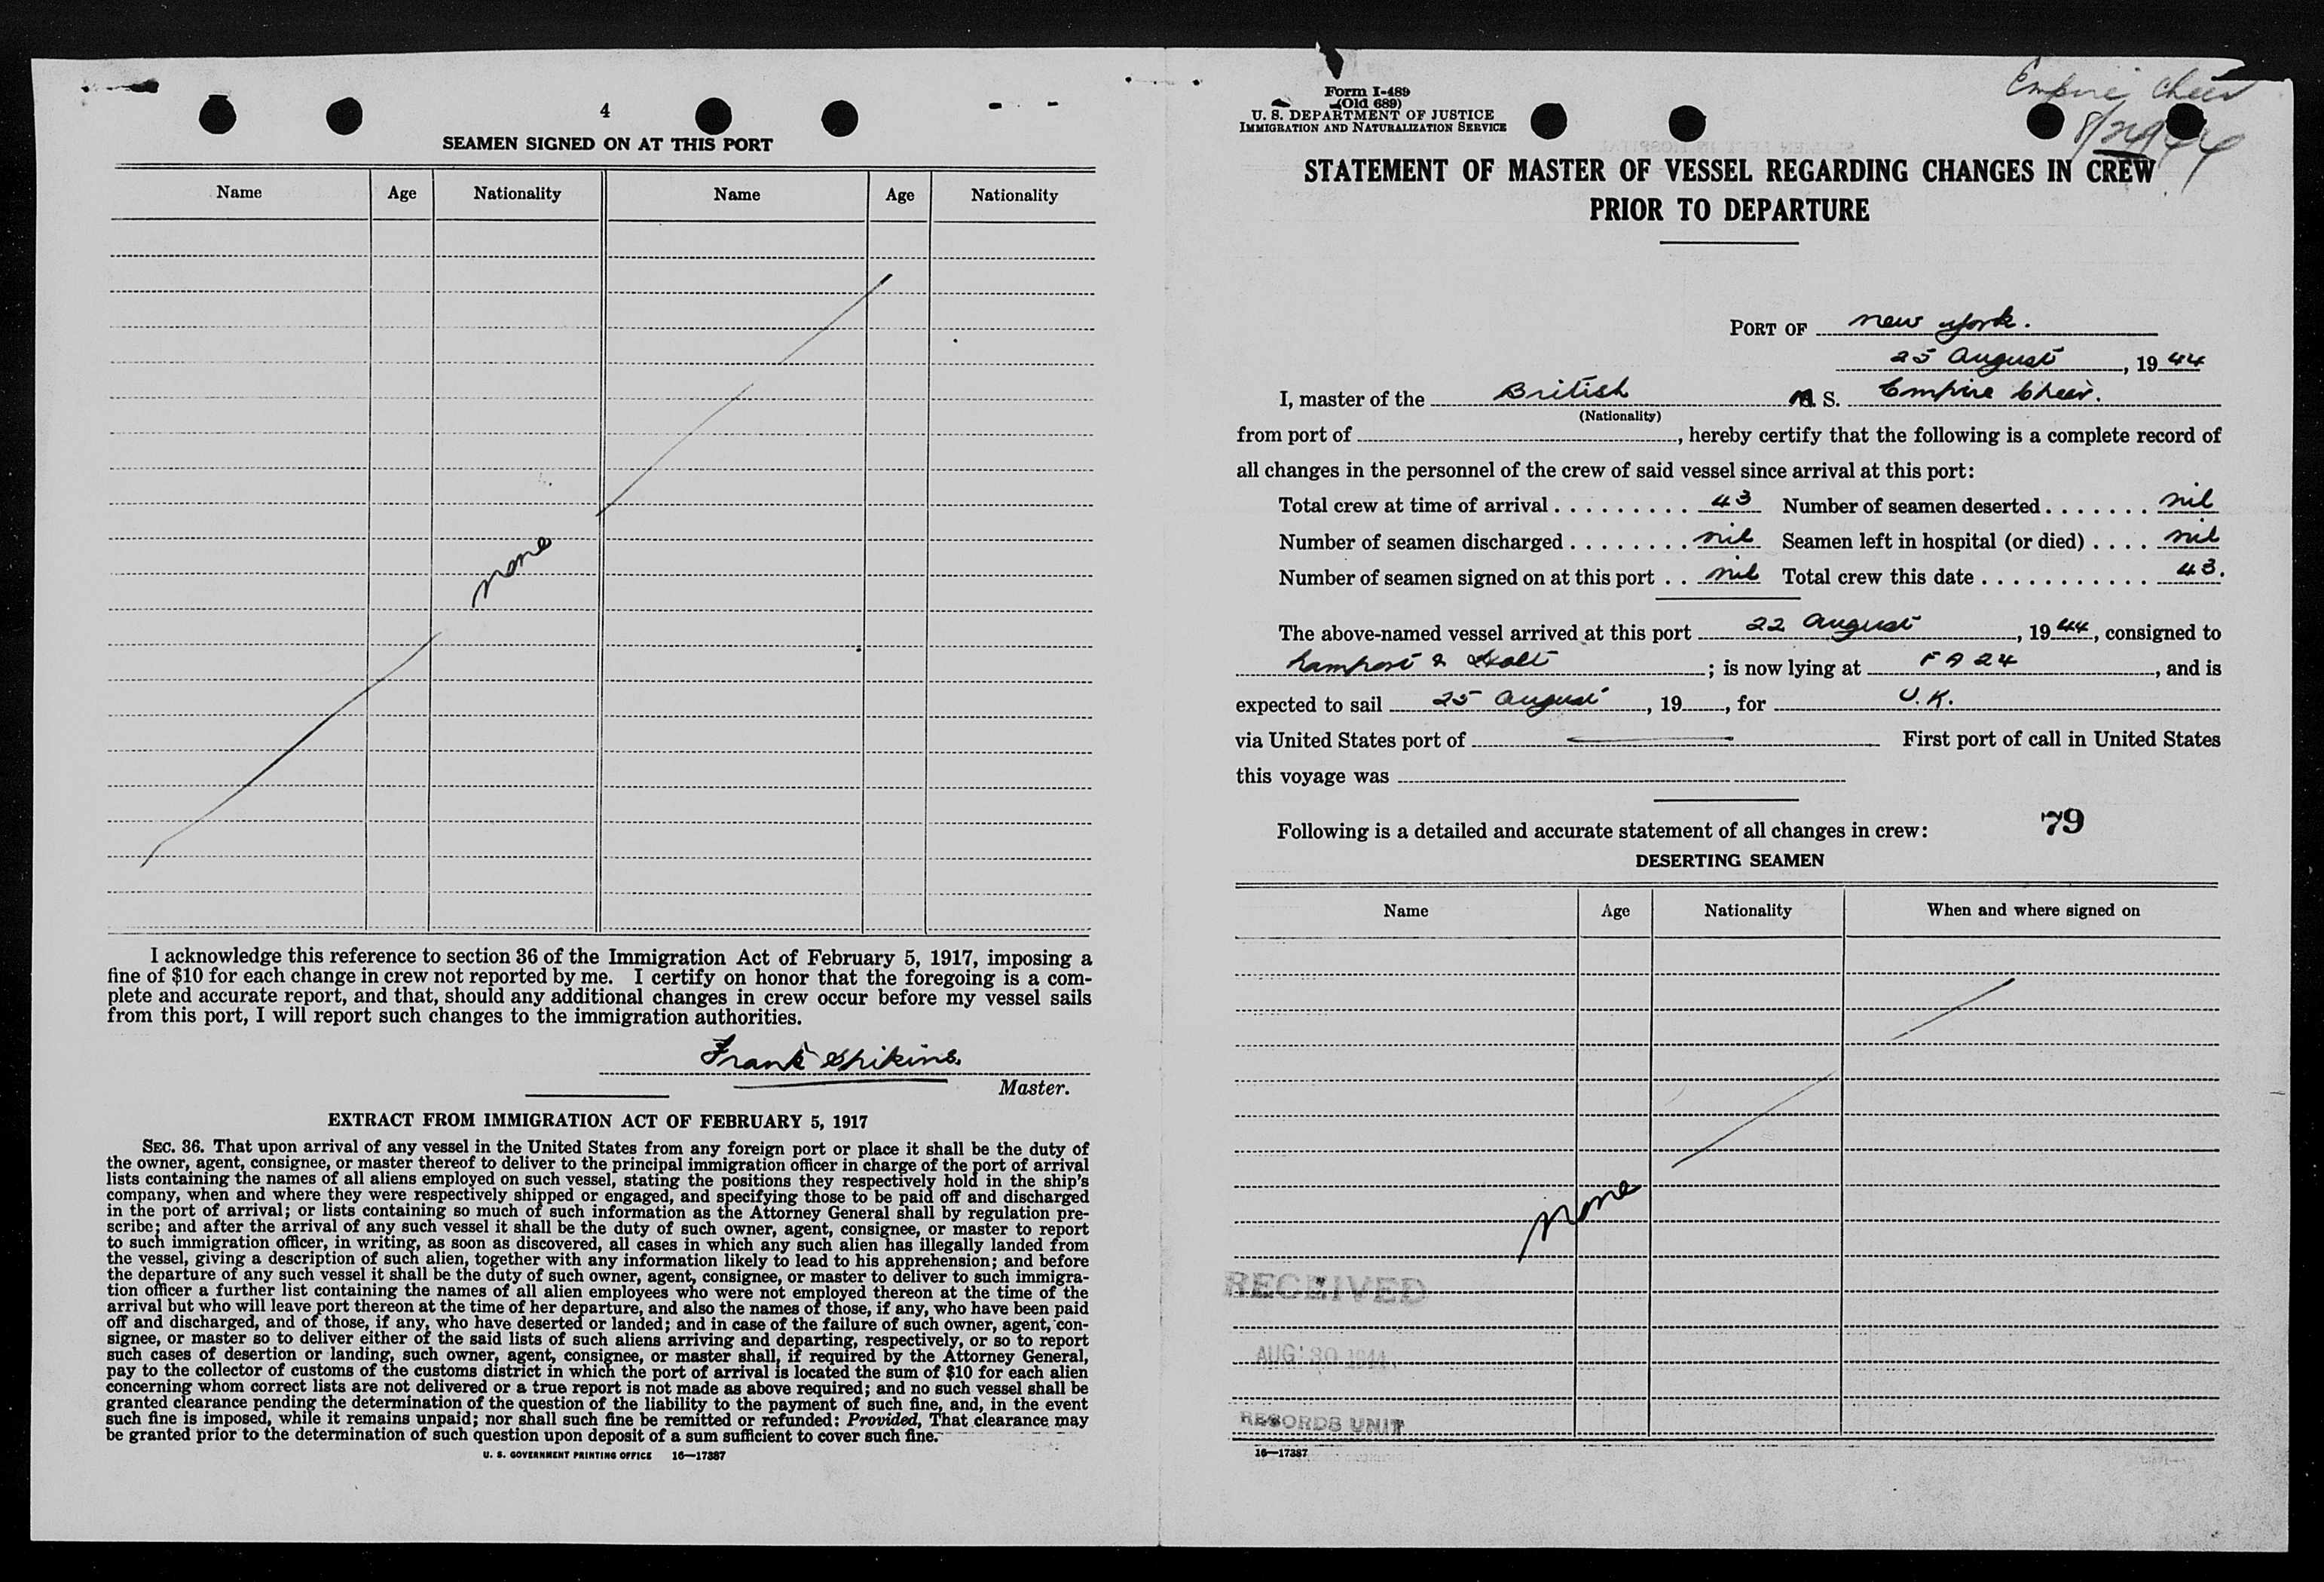 4
SEAMEN SIGNED ON AT THIS PORT
Name Age Nationality Name Age Nationality
none
I acknowledge this reference to section 36 of the Immigration Act of February 5, 1917, imposing a
fine of $10 for each change in crew not reported by me. I certify on honor that the foregoing is a com-
plete and accurate report, and that, should any additional changes in crew occur before my vessel sails
from this port, I will report such changes to the immigration authorities.
Frank Spikins.
Master.
EXTRACT FROM IMMIGRATION ACT OF FEBRUARY 5, 1917
SEC. 36. That upon arrival of any vessel in the United States from any foreign port or place it shall be the duty of
the owner, agent, consignee, or master thereof to deliver to the principal immigration officer in charge of the port of arrival
lists containing the names of all aliens employed on such vessel, stating the positions they respectively hold in the ship's
company, when and where they were respectively shipped or engaged, and specifying those to be paid off and discharged
in the port of arrival; or lists containing so much of such information as the Attorney General shall by regulation pre-
scribe; and after the arrival of any such vessel it shall be the duty of such owner, agent, consignee, or master to report
to such immigration officer, in writing, as soon as discovered, all cases in which any such alien has illegally landed from
the vessel, giving a description of such alien, together with any information likely to lead to his apprehension; and before
the departure of any such vessel it shall be the duty of such owner, agent, consignee, or master to deliver to such immigra-
tion officer a further list containing the names of all alien employees who were not employed thereon at the time of the
arrival but who will leave port thereon at the time of her departure, and also the names of those, if any, who have been paid
off and discharged, and of those, if any, who have deserted or landed; and in case of the failure of such owner, agent, con-
signee, or master so to deliver either of the said lists of such aliens arriving and departing, respectively, or so to report
such cases of desertion or landing, such owner, agent, consignee, or master shall, if required by the Attorney General,
pay to the collector of customs of the customs district in which the port of arrival is located the sum of $10 for each alien
concerning whom correct lists are not delivered or a true report is not made as above required; and no such vessel shall be
granted clearance pending the determination of the question of the liability to the payment of such fine, and, in the event
such fine is imposed, while it remains unpaid; nor shall such fine be remitted or refunded: Provided, That clearance may
be granted prior to the determination of such question upon deposit of a sum sufficient to cover such fine.
U. S. GOVERNMENT PRINTING OFFICE 16—17387
Form I-489
(Old 689)
U. S. DEPARTMENT OF JUSTICE
IMMIGRATION AND NATURALIZATION SERVICE
Empire Cheer
STATEMENT OF MASTER OF VESSEL REGARDING CHANGES IN CREW
PRIOR TO DEPARTURE
PORT OF new york.
25 August, 1944
I, master of the British M. S. Empire Cheer.
(Nationality)
from port of , hereby certify that the following is a complete record of
all changes in the personnel of the crew of said vessel since arrival at this port:
Total crew at time of arrival 43 Number of seamen deserted nil
Number of seamen discharged nil Seamen left in hospital (or died) nil
Number of seamen signed on at this port nil Total crew this date 43.
The above-named vessel arrived at this port 22 August, 1944, consigned to
Lamport & Holt; is now lying at F A 24, and is
expected to sail 25 August, 19 , for U.K.
via United States port of — First port of call in United States
this voyage was
79
Following is a detailed and accurate statement of all changes in crew:
DESERTING SEAMEN
Name Age Nationality When and where signed on
none
RECEIVED
AUG 30 1944
RECORDS UNIT
16—17387